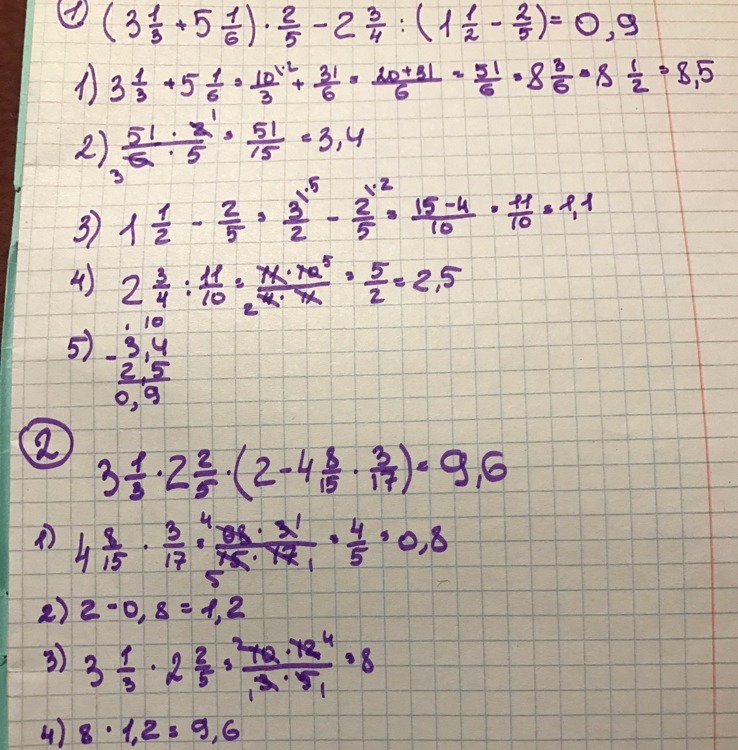 1) (3 1/3 + 5 1/6) · 2/5 - 2 3/4 : (1 1/2 - 2/5) = 0,9
1) 3 1/3 + 5 1/6 = 10/3 \·2 + 31/6 = 20+31/6 = 51/6 = 8 3/6 = 8 1/2 = 8,5
2) 51 · 2 1/3 6 · 5 = 51/15 = 3,4
3) 1 1/2 - 2/5 = 3/2 \·5 - 2/5 \·2 = 15-4/10 = 11/10 = 1,1
4) 2 3/4 : 11/10 = 11 · 10 5/2 4 · 11 = 5/2 = 2,5
· 10
5) - 3,4
2,5
0,9
2
3 1/3 · 2 2/5 · (2 - 4 8/15 · 3/17) = 9,6
1) 4 8/15 · 3/17 = 4 68 · 3 1/5 15 · 17 1 = 4/5 = 0,8
2) 2 - 0,8 = 1,2
3) 3 1/3 · 2 2/5 = 2 10 · 12 4/1 3 · 5 1 = 8
4) 8 · 1,2 = 9,6